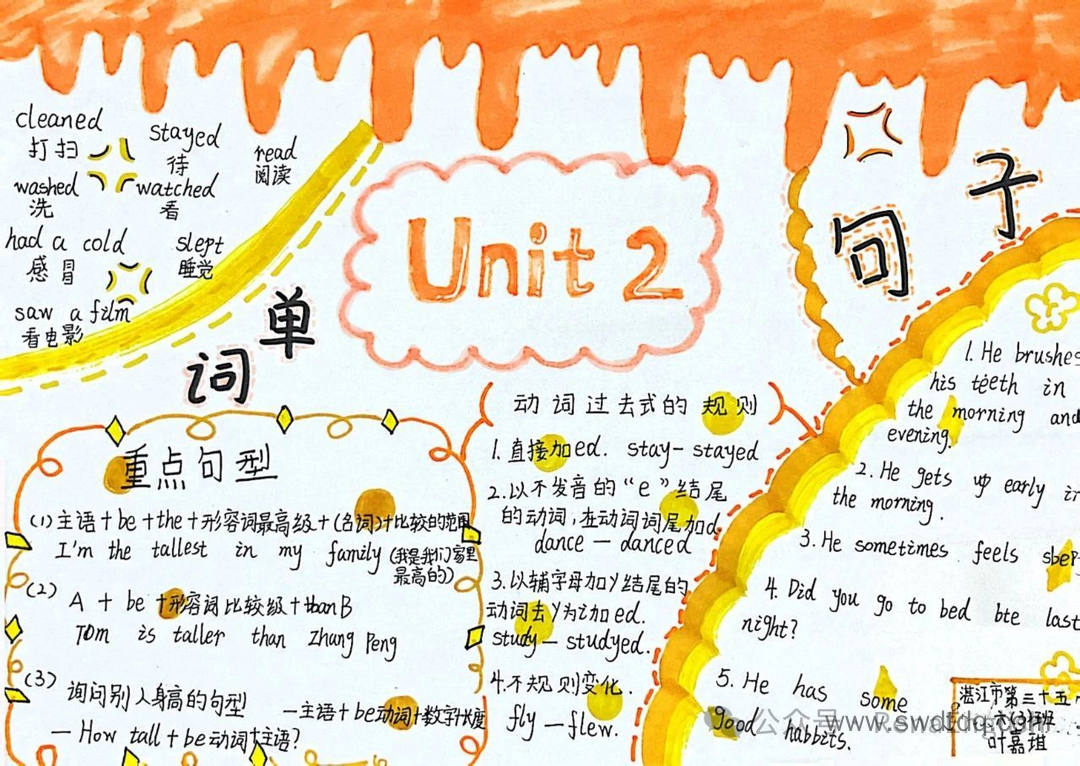 Unit 2
单词
cleaned
打扫
stayed
待
read
阅读
washed
洗
watched
看
had a cold
感冒
slept
睡觉
saw a film
看电影
重点句型
(1)主语+be+the+形容词最高级+(名词)+比较的范围
I'm the tallest in my family(我是我们家里
最高的)
(2)
A + be +形容词比较级+than B
Tom is taller than Zhang Peng
(3)
询问别人身高的句型
—主语+be动词+数字+长度
—How tall+be动词+主语?
动词过去式的规则
1.直接加ed. stay-stayed
2.以不发音的“e”结尾
的动词,在动词词尾加d
dance—danced
3.以辅字母加y结尾的
动词去y为i加ed.
study—studyed.
4.不规则变化.
fly—flew.
句子
1. He brushes
his teeth in
the morning and
evening.
2. He gets up early in
the morning.
3. He sometimes feels
4. Did you go to bed bte last
night?
5. He has some
good habbits.
湛江市第三十五
六(3)班
叶嘉琪
公众号
www.swdfdq.com